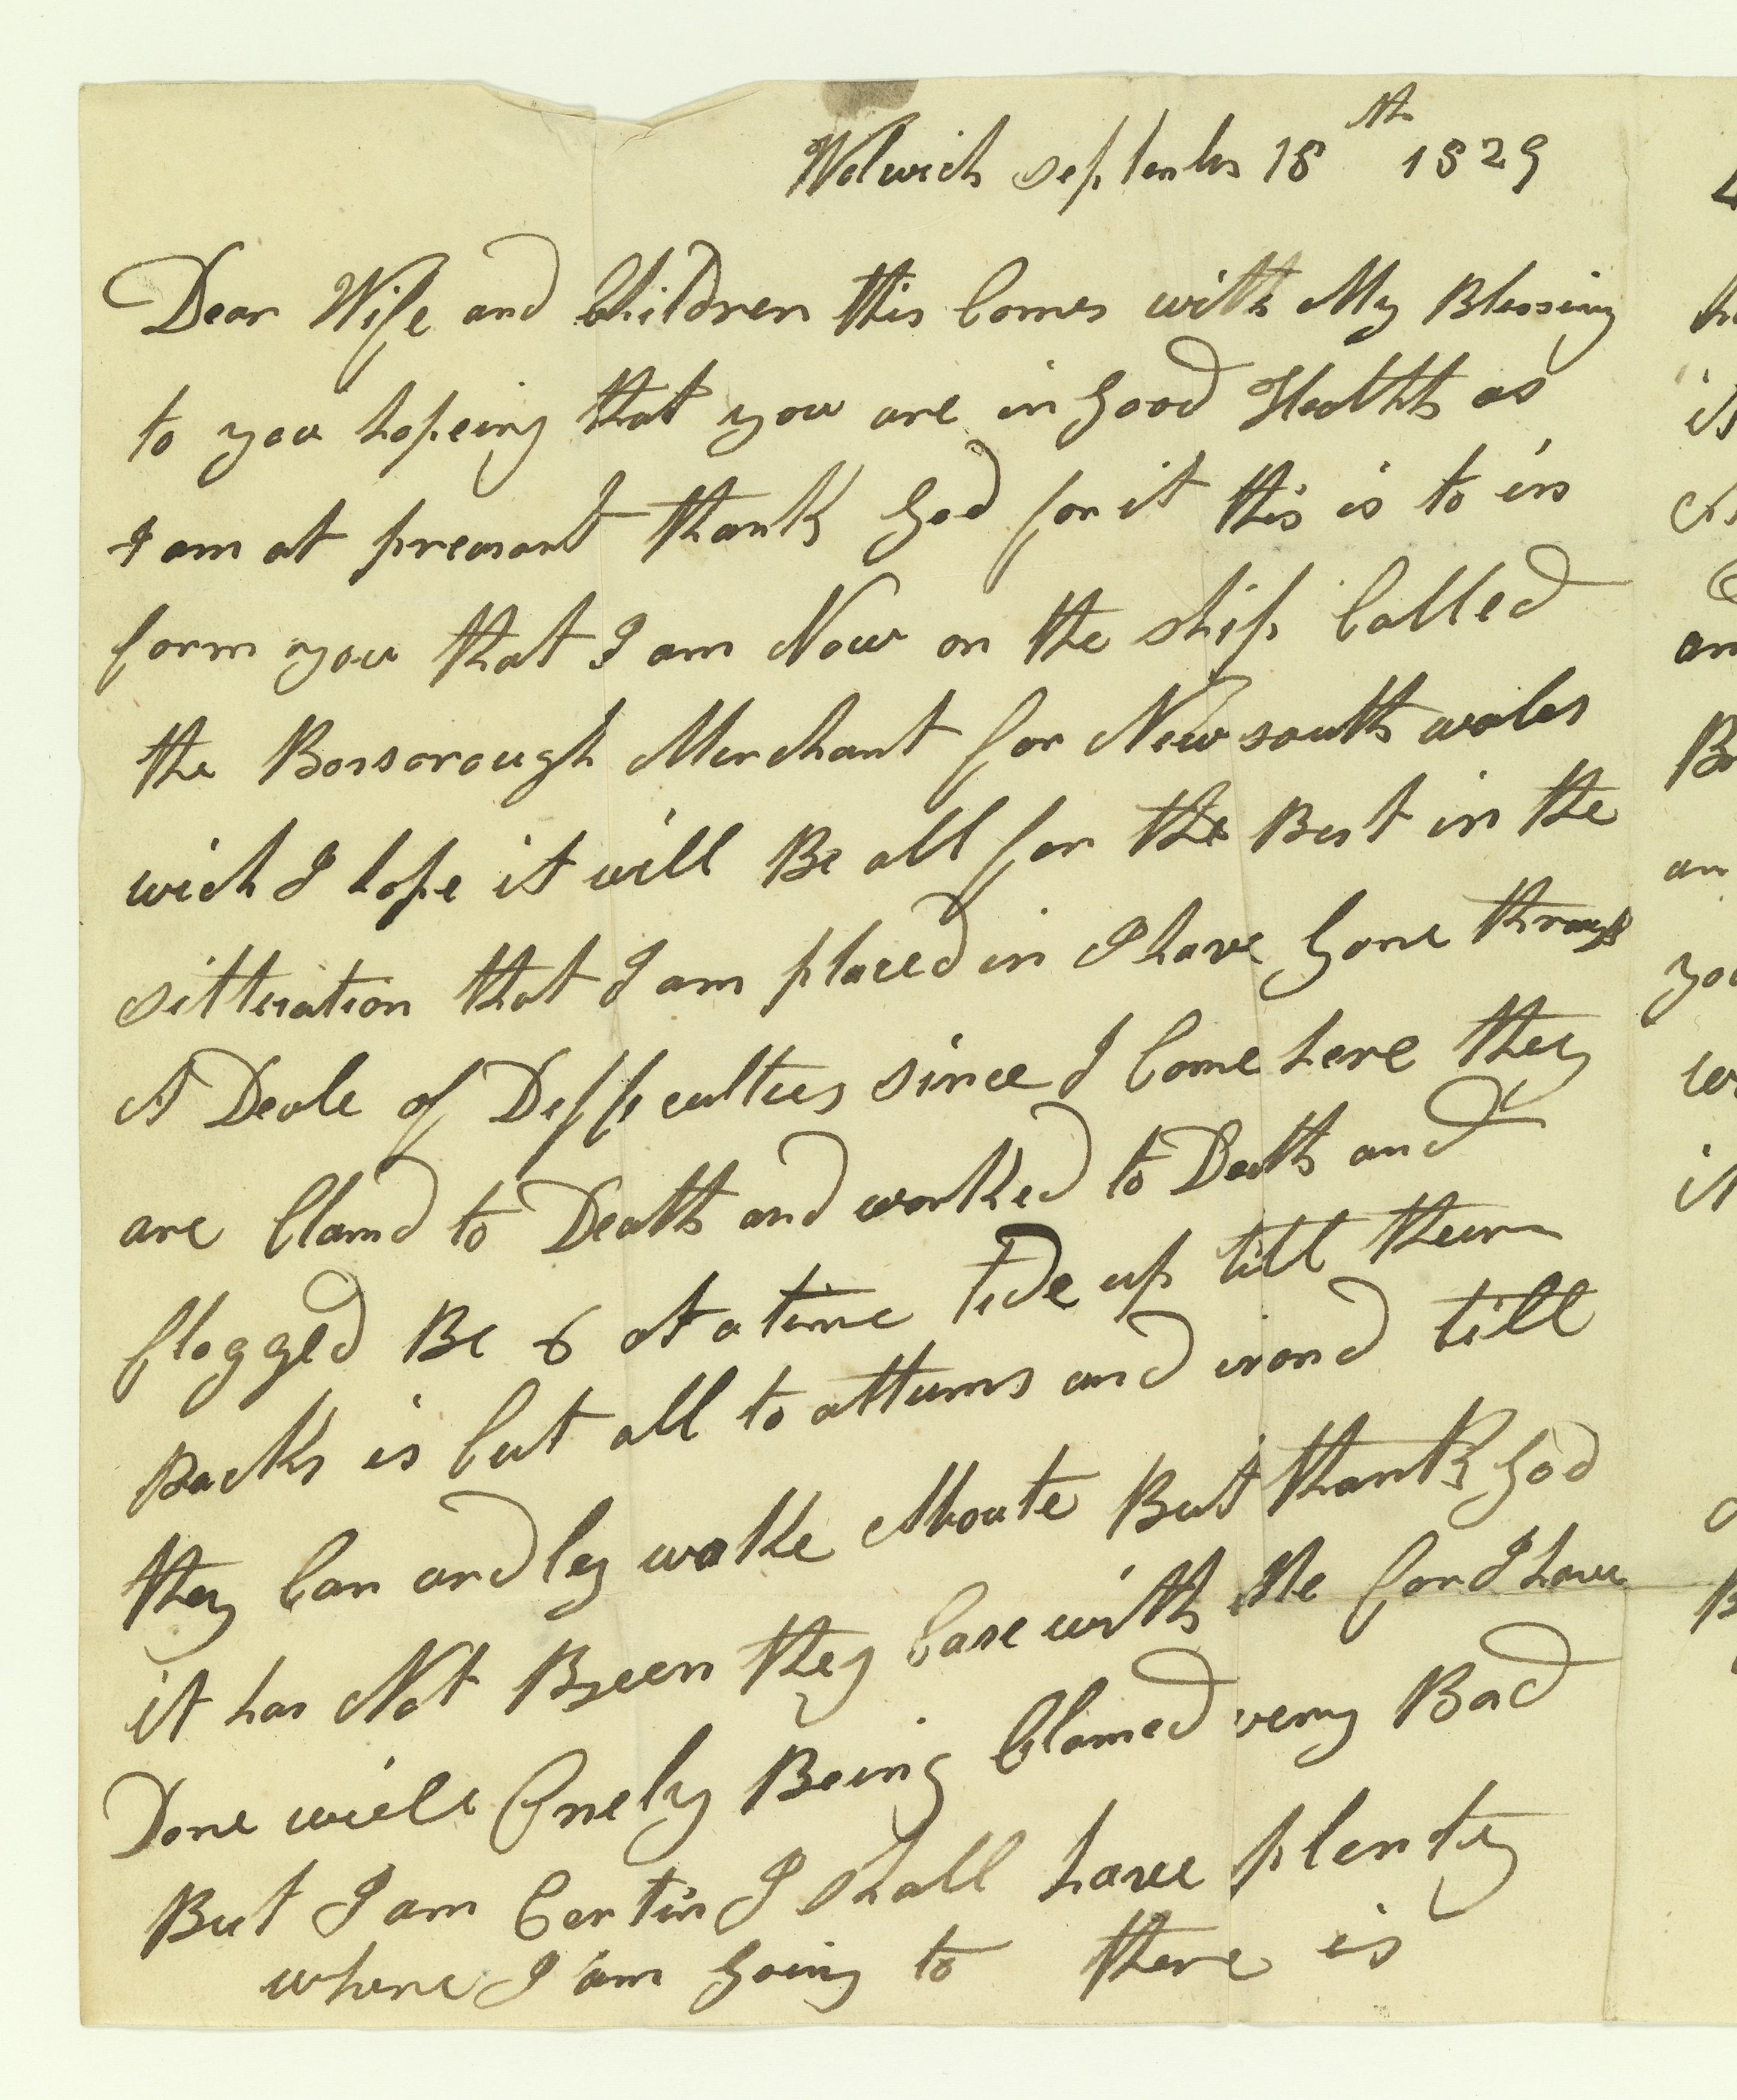 Wolwich september 18th 1829
Dear Wife and Children this Comes with My Blessing
to you hopeing that you are in Good Health as
I am at preasant thank God for it this is to in
form you that I am Now on the ship Called
the Borsorough Merchant for New south wales
wich I hope it will Be all for the Best in the
sittiration that I am placed in I have Gone through
A Deale of Deffecultees since I Come here they
are Clamd to Death and worked to Death and
flogged Be 6 At a time tide up till theur
Backs is Cut all to attums and irond till
they Can ardley walke Aboute But thank God
it has Not Been they Case with Me for I have
Done wiell Onely Being Clamed very Bad
But I am Certin I shall have plenty
where I am Going to there is